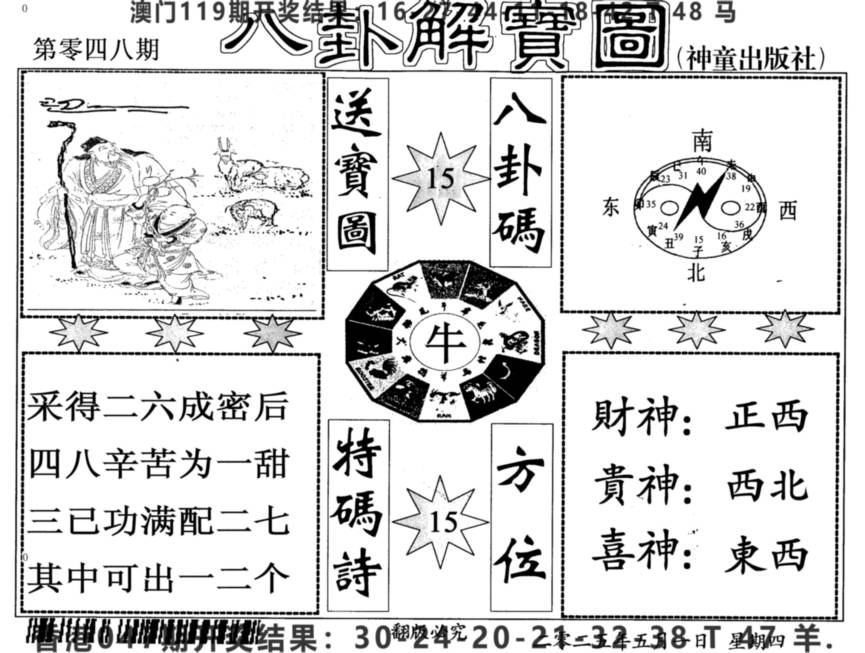 澳门119期开奖结果：16
18
T 48 马
八卦解寶圖
第零四八期
(神童出版社)
送寶圖
15
八卦碼
南
午
巳
31
40
未
38
辰
23
申
19
东
卯
35
22
酉
西
寅
24
36
戌
丑
39
15
子
16
亥
北
RAT
DRAGON
ROOSTER
RAM
牛
采得二六成密后
四八辛苦为一甜
三已功满配二七
其中可出一二个
特碼詩
15
方位
財神：正西
貴神：西北
喜神：東西
香港047期开奖结果：30-24-20-21-32-38 T 47 羊.
翻版必究
二零二五年五月一日 星期四